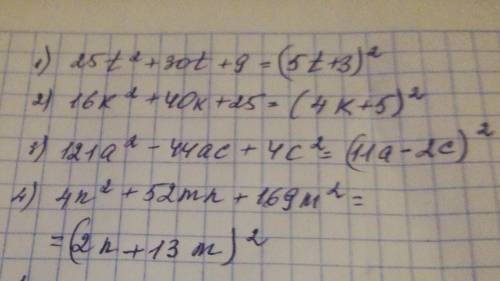 1) 25t² + 30t + 9 = (5t+3)²
2) 16k² + 40k + 25 = (4k+5)²
3) 121a² - 44ac + 4c² = (11a - 2c)²
4) 4n² + 52mn + 169m² =
= (2n + 13m)²